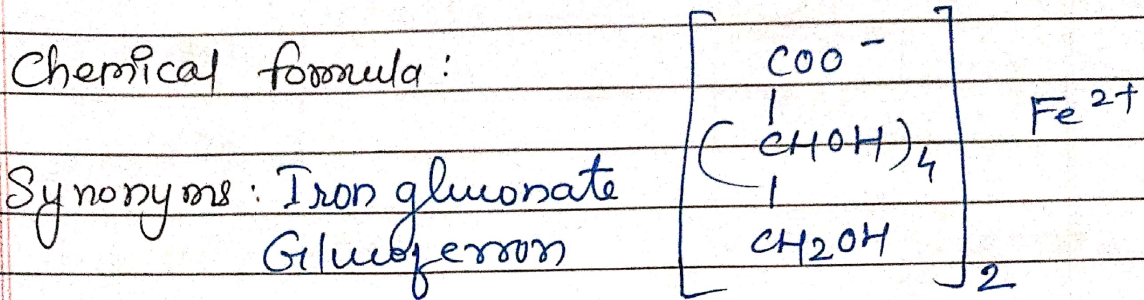 Chemical formula :
COO⁻
|
(CHOH)₄
|
CH2OH
2
Fe 2+
Synonyms : Iron gluconate
Glucoferron